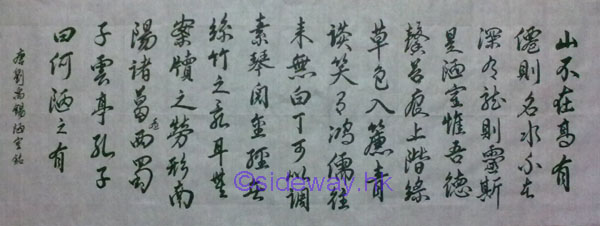 山不在高有
僊則名水不在
深有龍則靈斯
是陋室惟吾德
馨苔痕上階綠
草色入簾青
談笑有鴻儒往
来無白丁可以調
素琴閱金經無
絲竹之亂耳無
案牘之勞形南
陽諸葛廬西蜀
子雲亭孔子
曰何陋之有
唐劉禹錫陋室銘
©sideway.hk